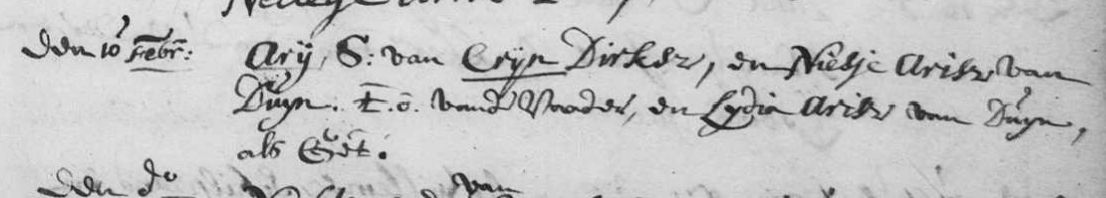 den 10 Febr: Arij, S: van Crijn Dirksz, en Niesje Arisz van
Duijn. t. o. vande Vaader, en Lydia Arisz van Duijn,
als Get:
den do van